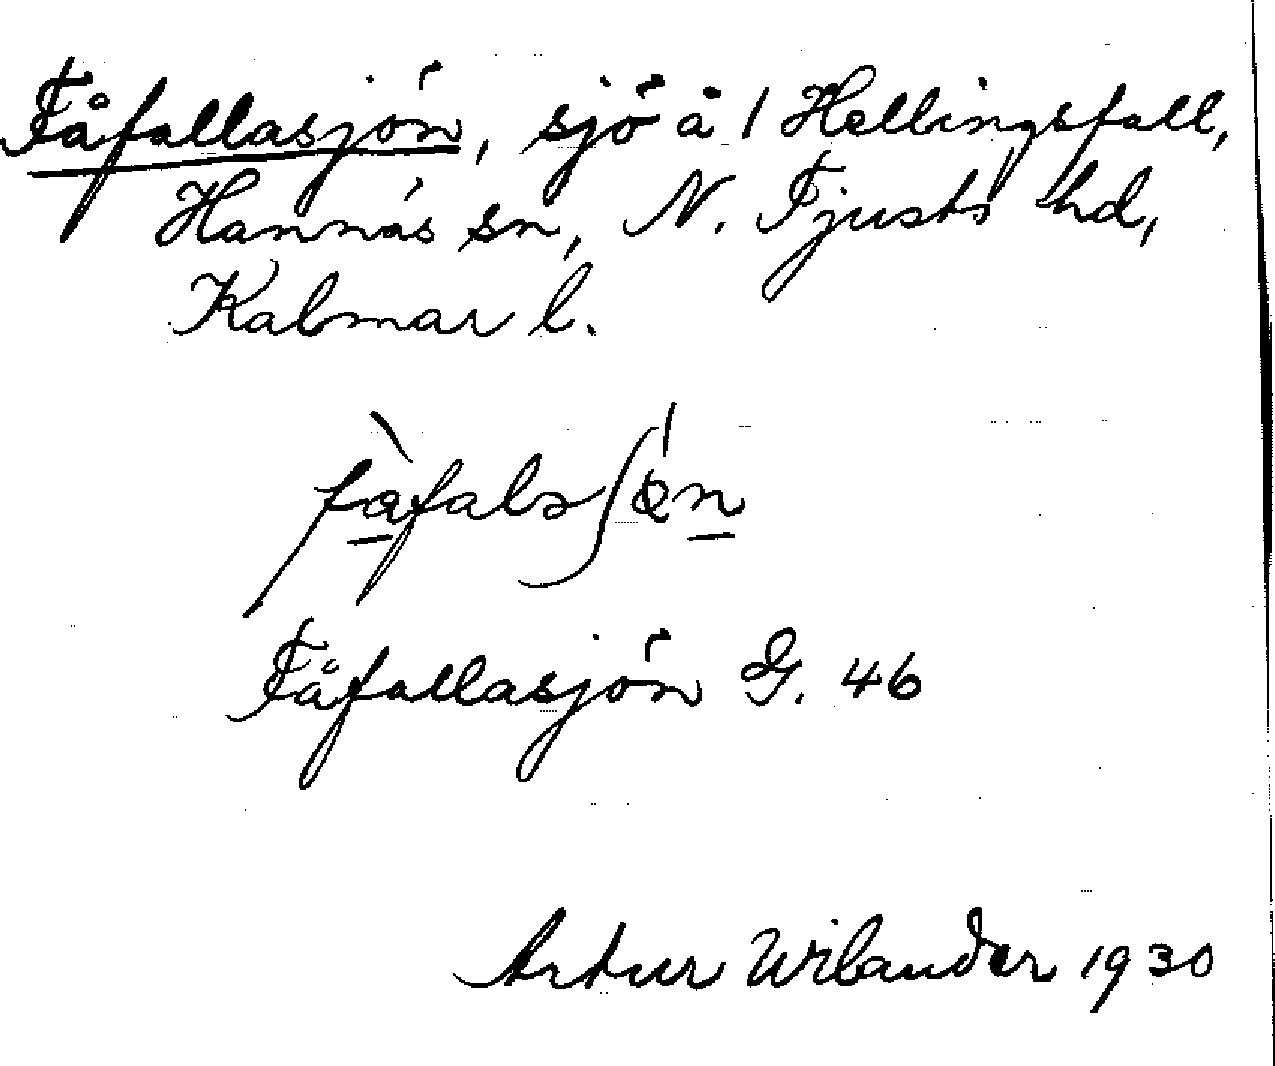 Fåfallasjön, sjö å 1 Hellingsfall,
Hannäs sn, N. Tjusts hd,
Kalmar l.
Fåfallasjön G. 46
Artur Wilander 1930